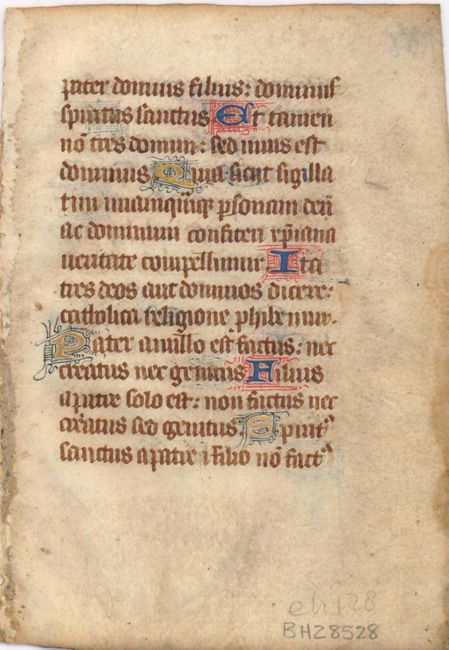 pater dominus filius: dominus
spiritus sanctus Et tamen
nō tres domini: sed unus est
dominus Quia sicut sigilla
tim unamquāq; psonam deū
ac dominum confiteri xp̄iana
ueritate compellimur Ita
tres deos aut dominos dicere:
catholica religione phibemur.
Pater a nullo est factus: nec
creatus nec genitus Filius
a patre solo est: non factus nec
creatus sed genitus. Spirit᷒
sanctus a patre i filio nō fact᷒
BHZ8528